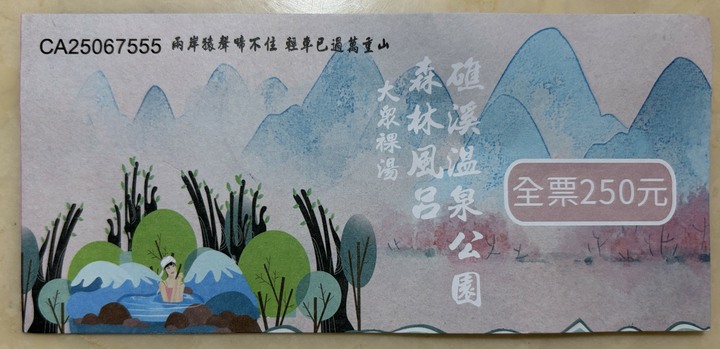 CA25067555 兩岸猿聲啼不住 輕車已過萬重山
礁溪溫泉公園
森林風呂
大眾裸湯
全票250元